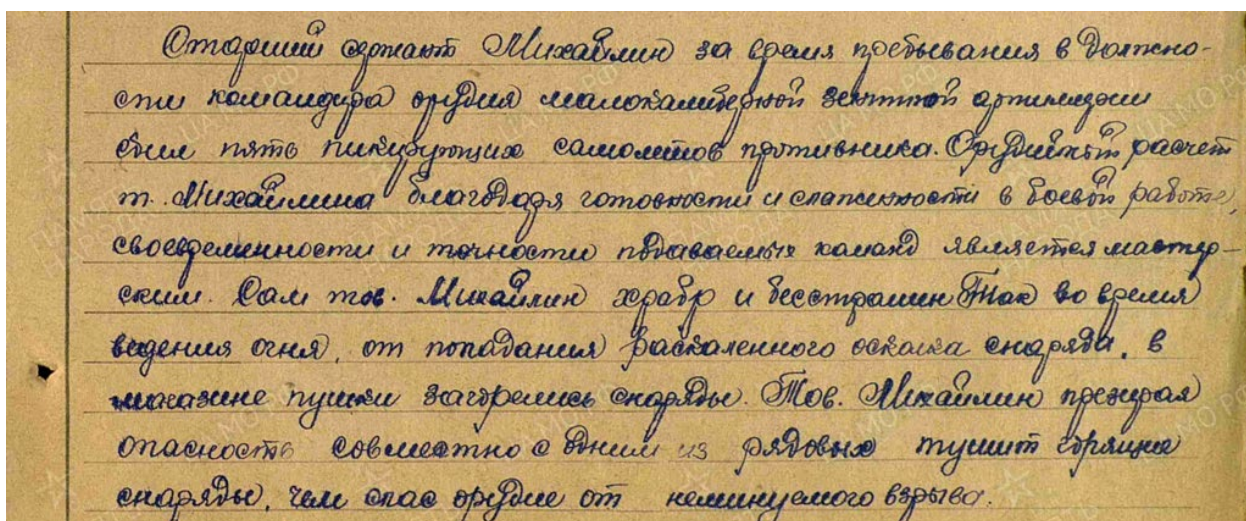 Старший сержант Михайлин за время пребывания в должно-
сти командира орудия малокалиберной зенитной артиллерии
сбил пять пикирующих самолетов противника. Орудийный расчет
т. Михайлина благодаря готовности и слаженности в боевой работе,
своевременности и точности подаваемых команд является мастер-
ским. Сам тов. Михайлин храбр и бесстрашен Так во время
ведения огня, от попадания раскаленного осколка снаряда, в
магазине пушки загорелись снаряды. Тов. Михайлин презирая
опасность совместно с одним из рядовых тушит горящие
снаряды, чем спас орудие от неминуемого взрыва.